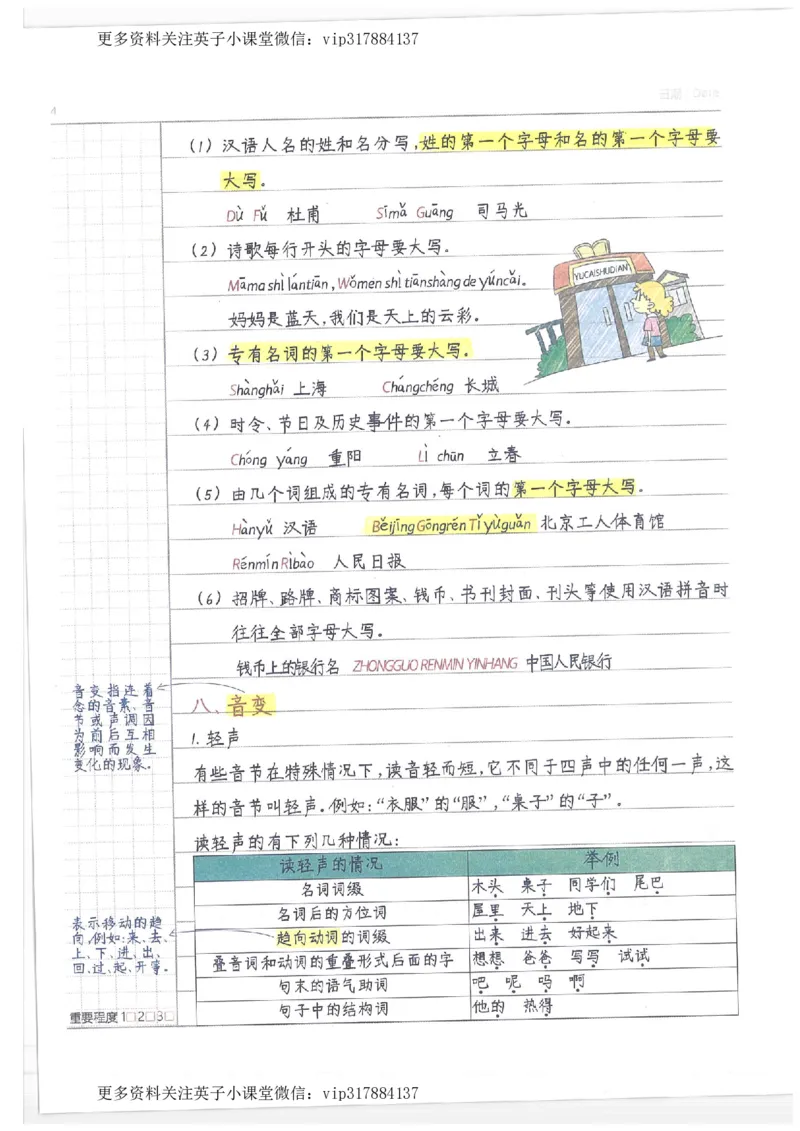 更多资料关注英子小课堂微信：vip317884137
日期 Date
4
(1) 汉语人名的姓和名分写,姓的第一个字母和名的第一个字母要
大写.
Dù Fǔ 杜甫 Sīmǎ Guāng 司马光
(2) 诗歌每行开头的字母要大写.
Māma shì lántiān , Wǒmen shì tiānshàng de yúncǎi.
妈妈是蓝天,我们是天上的云彩.
YUCAISHUDIAN
(3) 专有名词的第一个字母要大写.
Shànghǎi 上海 Chángchéng 长城
(4) 时令、节日及历史事件的第一个字母要大写.
Chóng yáng 重阳 Lì chūn 立春
(5) 由几个词组成的专有名词,每个词的第一个字母大写.
Hànyǔ 汉语 Běijīng Gōngrén Tǐyùguǎn 北京工人体育馆
Rénmín Rìbào 人民日报
(6) 招牌、路牌、商标图案、钱币、书刊封面、刊头等使用汉语拼音时
往往全部字母大写.
钱币上的银行名 ZHONGGUO RENMIN YINHANG 中国人民银行
音变指连着
念的音素、音
节或声调因
为前后互相
影响而发生
变化的现象.
八、音变
1. 轻声
有些音节在特殊情况下,读音轻而短,它不同于四声中的任何一声,这
样的音节叫轻声.例如:“衣服”的“服”,“桌子”的“子”.
读轻声的有下列几种情况:
读轻声的情况 举例
名词词缀 木头 桌子 同学们 尾巴
名词后的方位词 屋里 天上 地下
趋向动词的词缀 出来 进去 好起来
叠音词和动词的重叠形式后面的字 想想 爸爸 写写 试试
句末的语气助词 吧 呢 吗 啊
句子中的结构词 他的 热得
表示移动的趋
向,例如:来、去、
上、下、进、出、
回、过、起、开等.
重要程度 1□2□3□
更多资料关注英子小课堂微信：vip317884137